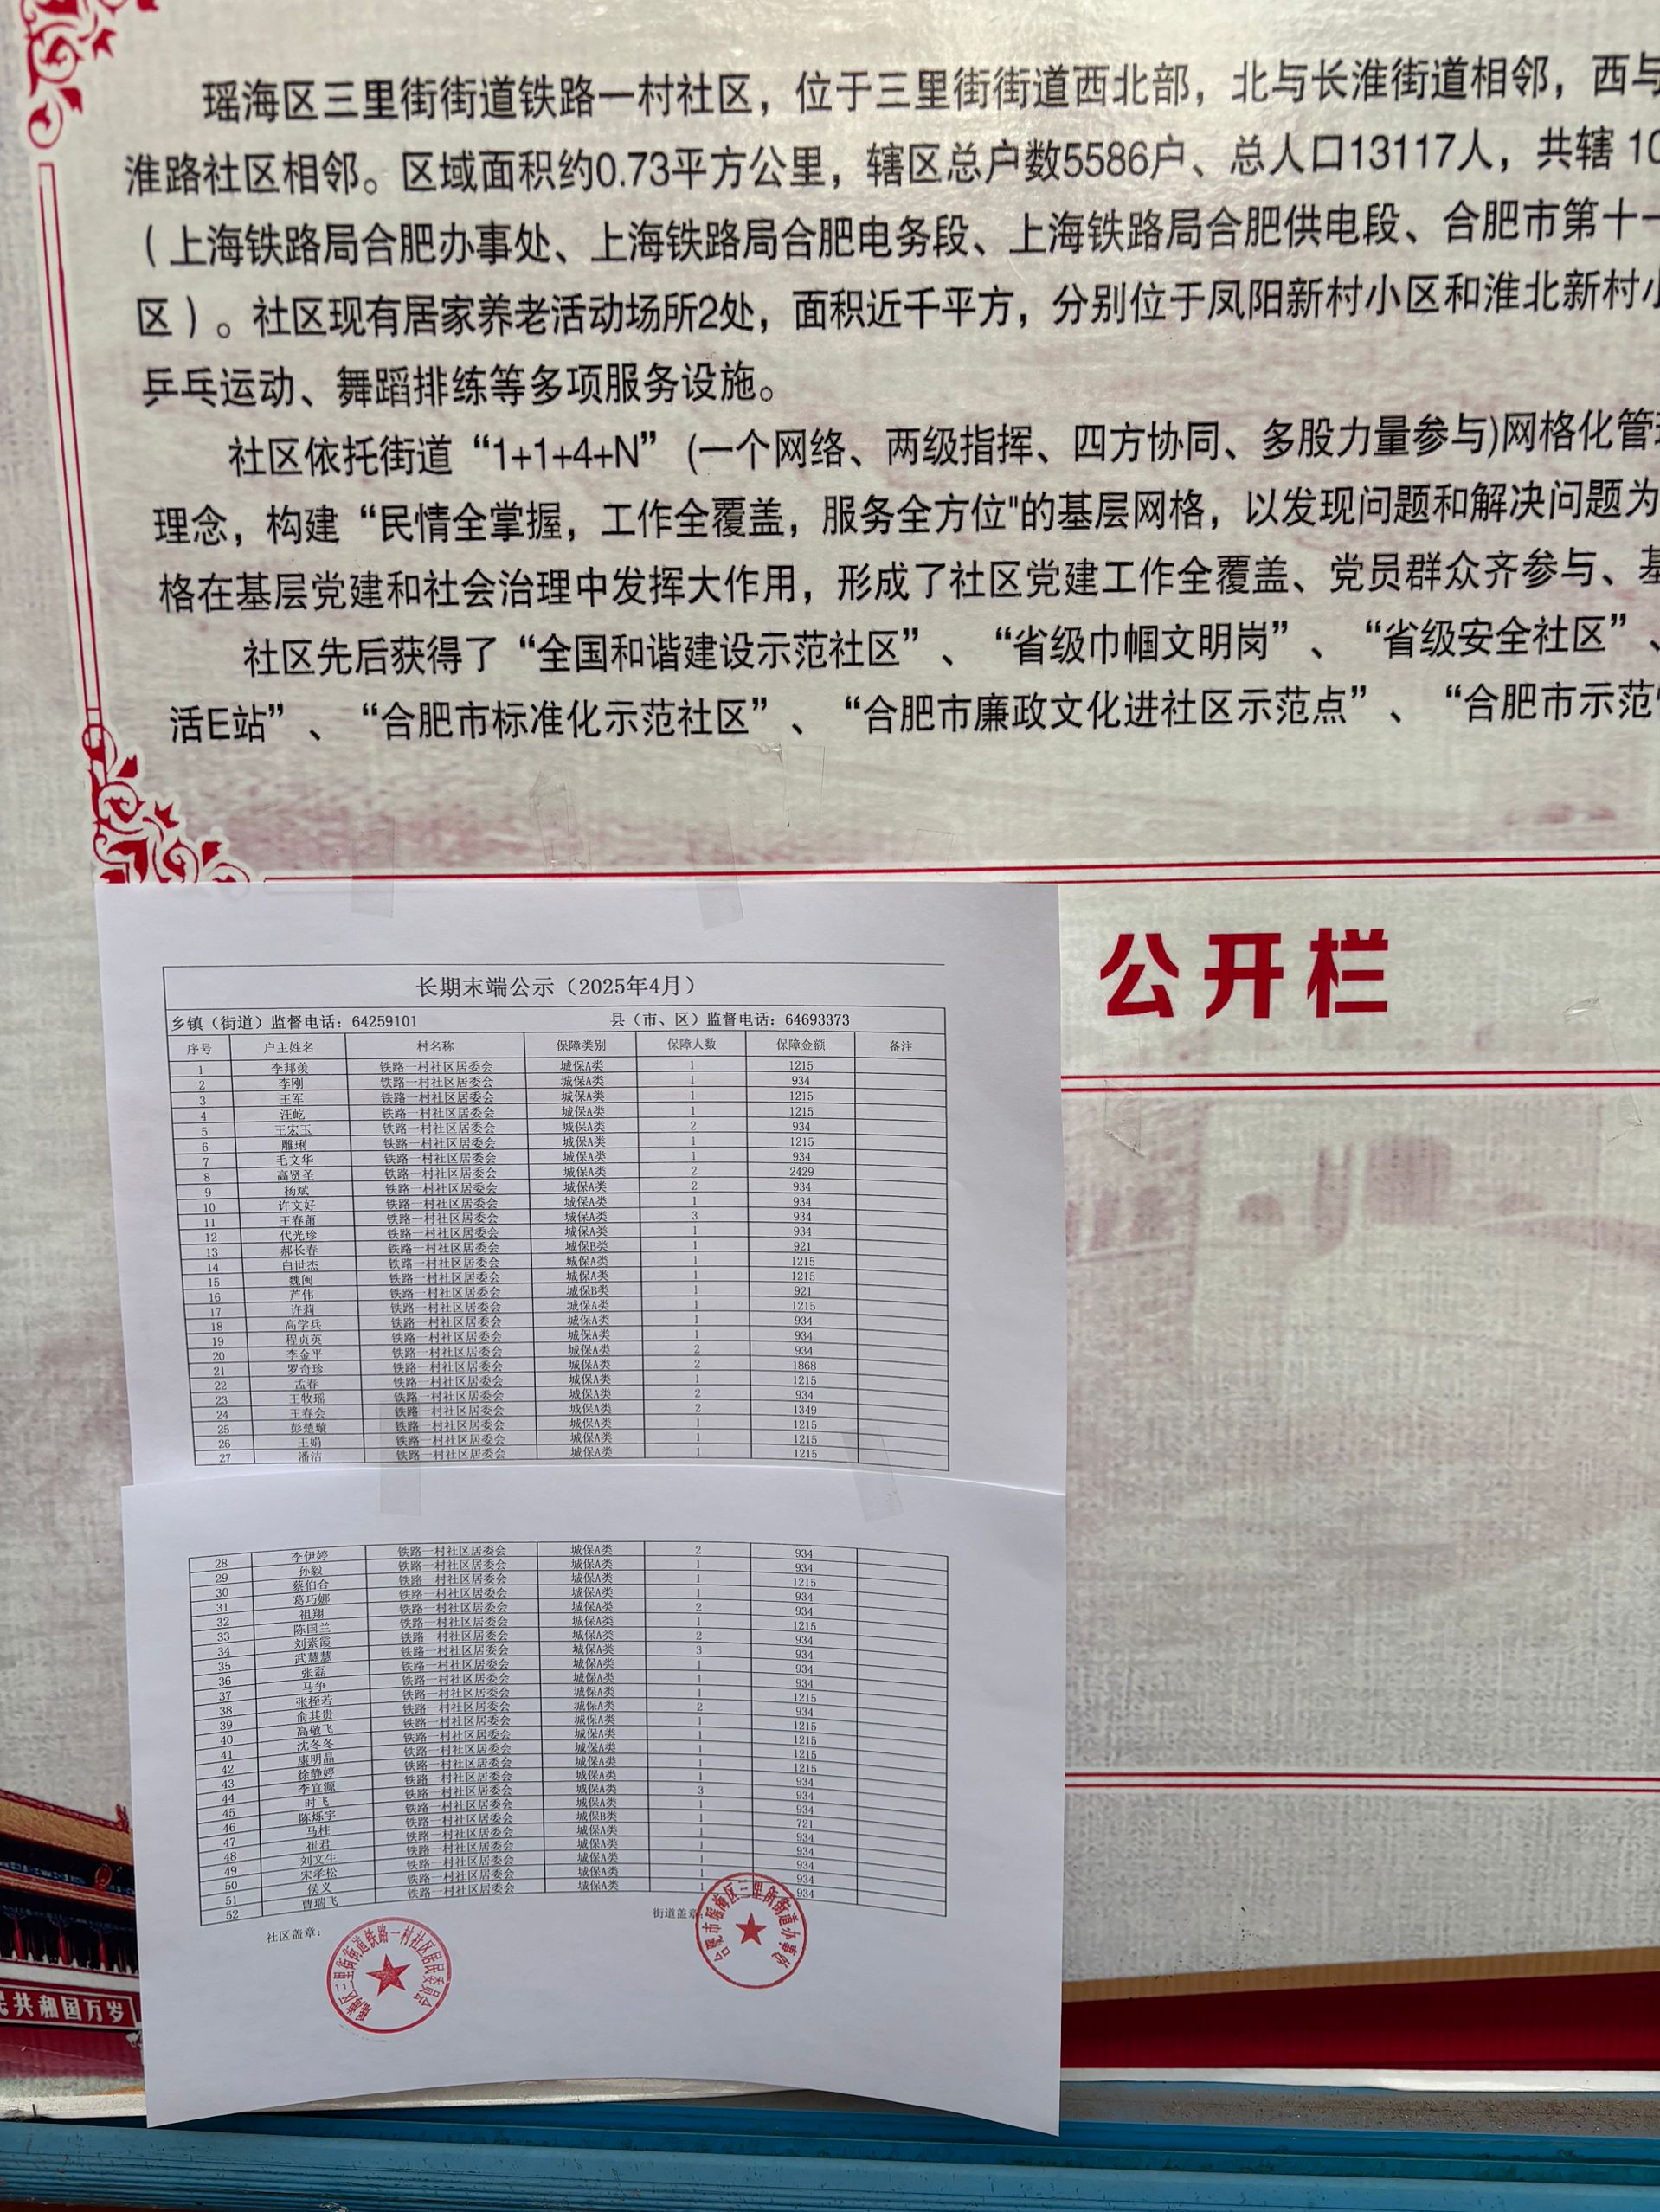 瑶海区三里街街道铁路一村社区，位于三里街街道西北部，北与长淮街道相邻，西与
淮路社区相邻。区域面积约0.73平方公里，辖区总户数5586户、总人口13117人，共辖 10
（上海铁路局合肥办事处、上海铁路局合肥电务段、上海铁路局合肥供电段、合肥市第十一
区）。社区现有居家养老活动场所2处，面积近千平方，分别位于凤阳新村小区和淮北新村小
乒乓运动、舞蹈排练等多项服务设施。
社区依托街道“1+1+4+N” (一个网络、两级指挥、四方协同、多股力量参与)网格化管理
理念，构建“民情全掌握，工作全覆盖，服务全方位"的基层网格，以发现问题和解决问题为
格在基层党建和社会治理中发挥大作用，形成了社区党建工作全覆盖、党员群众齐参与、基
社区先后获得了“全国和谐建设示范社区”、“省级巾帼文明岗”、“省级安全社区”、
活E站”、“合肥市标准化示范社区”、“合肥市廉政文化进社区示范点”、“合肥市示范
公开栏
长期末端公示（2025年4月）
乡镇（街道）监督电话：64259101 县（市、区）监督电话：64693373
序号 户主姓名 村名称 保障类别 保障人数 保障金额 备注
1 李邦羡 铁路一村社区居委会 城保A类 1 1215
2 李刚 铁路一村社区居委会 城保A类 1 934
3 王军 铁路一村社区居委会 城保A类 1 1215
4 汪屹 铁路一村社区居委会 城保A类 1 1215
5 王宏玉 铁路一村社区居委会 城保A类 2 934
6 雕琍 铁路一村社区居委会 城保A类 1 1215
7 毛文华 铁路一村社区居委会 城保A类 1 934
8 高贤圣 铁路一村社区居委会 城保A类 2 2429
9 杨斌 铁路一村社区居委会 城保A类 2 934
10 许文好 铁路一村社区居委会 城保A类 1 934
11 王春萧 铁路一村社区居委会 城保A类 3 934
12 代光珍 铁路一村社区居委会 城保A类 1 934
13 郝长春 铁路一村社区居委会 城保B类 1 921
14 白世杰 铁路一村社区居委会 城保A类 1 1215
15 魏闽 铁路一村社区居委会 城保A类 1 1215
16 芦伟 铁路一村社区居委会 城保B类 1 921
17 许莉 铁路一村社区居委会 城保A类 1 1215
18 高学兵 铁路一村社区居委会 城保A类 1 934
19 程贞英 铁路一村社区居委会 城保A类 1 934
20 李金平 铁路一村社区居委会 城保A类 2 934
21 罗奇珍 铁路一村社区居委会 城保A类 2 1868
22 孟春 铁路一村社区居委会 城保A类 1 1215
23 王牧瑶 铁路一村社区居委会 城保A类 2 934
24 王春会 铁路一村社区居委会 城保A类 2 1349
25 彭楚璇 铁路一村社区居委会 城保A类 1 1215
26 王娟 铁路一村社区居委会 城保A类 1 1215
27 潘洁 铁路一村社区居委会 城保A类 1 1215
28 李伊婷 铁路一村社区居委会 城保A类 2 934
29 孙毅 铁路一村社区居委会 城保A类 1 934
30 蔡伯合 铁路一村社区居委会 城保A类 1 1215
31 葛巧娜 铁路一村社区居委会 城保A类 1 934
32 祖翔 铁路一村社区居委会 城保A类 2 934
33 陈国兰 铁路一村社区居委会 城保A类 1 1215
34 刘素霞 铁路一村社区居委会 城保A类 2 934
35 武慧慧 铁路一村社区居委会 城保A类 3 934
36 张磊 铁路一村社区居委会 城保A类 1 934
37 马争 铁路一村社区居委会 城保A类 1 934
38 张桎若 铁路一村社区居委会 城保A类 1 1215
39 俞其贵 铁路一村社区居委会 城保A类 2 934
40 高敬飞 铁路一村社区居委会 城保A类 1 1215
41 沈冬冬 铁路一村社区居委会 城保A类 1 1215
42 康明晶 铁路一村社区居委会 城保A类 1 1215
43 徐静婷 铁路一村社区居委会 城保A类 1 1215
44 李宜源 铁路一村社区居委会 城保A类 1 934
45 时飞 铁路一村社区居委会 城保A类 3 934
46 陈烁宇 铁路一村社区居委会 城保A类 1 934
47 马柱 铁路一村社区居委会 城保B类 1 721
48 崔君 铁路一村社区居委会 城保A类 1 934
49 刘文生 铁路一村社区居委会 城保A类 1 934
50 宋孝松 铁路一村社区居委会 城保A类 1 934
51 侯义 铁路一村社区居委会 城保A类 1 934
52 曹瑞飞 铁路一村社区居委会 城保A类 1 934
社区盖章： 街道盖章：
瑶海区三里街街道铁路一村社区居民委员会
合肥市瑶海区三里街街道办事处
民共和国万岁